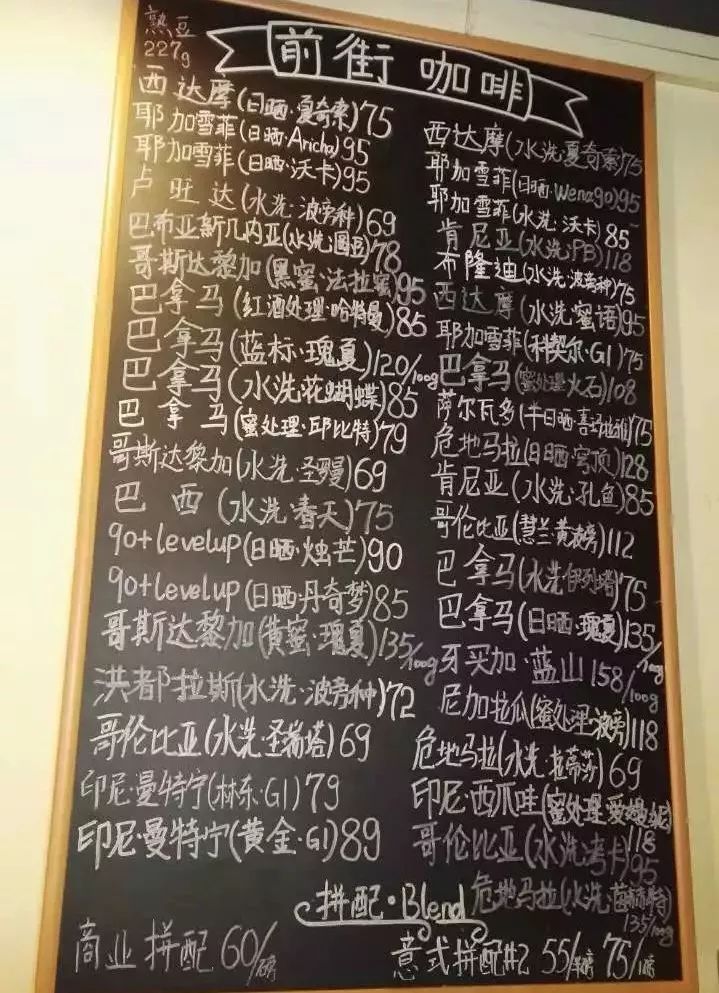 熟豆
227g
前街咖啡
西达摩(日晒·夏奇索)75
耶加雪菲(日晒·Aricha)95
耶加雪菲(日晒·沃卡)95
卢旺达(水洗·波旁种)69
巴布亚新几内亚(水洗·圆豆)78
哥斯达黎加(黑蜜·法拉蜜)95
巴拿马(红酒处理·哈特曼)85
巴拿马(蓝标·瑰夏)120/100g
巴拿马(水洗花蝴蝶)85
巴拿马(蜜处理·邱比特)79
哥斯达黎加(水洗·圣罗曼)69
巴西(水洗·春天)75
90+levelup(日晒·烛芒)90
90+levelup(日晒丹奇梦)85
哥斯达黎加(黄蜜·瑰夏)135/100g
洪都拉斯(水洗·波旁种)72
哥伦比亚(水洗·圣瑞塔)69
印尼·曼特宁(林东·G1)79
印尼·曼特宁(黄金·G1)89
西达摩(水洗夏奇索)75
耶加雪菲(日晒·Wenago)95
耶加雪菲(水洗·沃卡)85
肯尼亚(水洗·PB)118
布隆迪(水洗·波旁种)75
西达摩(水洗·蜜语)95
耶加雪菲(科契尔·G1)75
巴拿马(蜜处理·火石)108
萨尔瓦多(半日晒·喜马拉雅)75
危地马拉(日晒·穹顶)128
肯尼亚(水洗·孔雀)85
哥伦比亚(慧兰·黄波旁)112
巴拿马(水洗伊列塔)75
巴拿马(日晒·瑰夏)135/100g
牙买加·蓝山158/100g
尼加拉瓜(蜜处理·波旁)118
危地马拉(水洗·拉蒂莎)69
印尼·西爪哇(蜜处理·爱嫚妮)118
哥伦比亚(水洗·考卡)95
危地马拉(水洗)135/100g
拼配·Blend
商业拼配60/磅
意式拼配#2 55/半磅 75/1磅